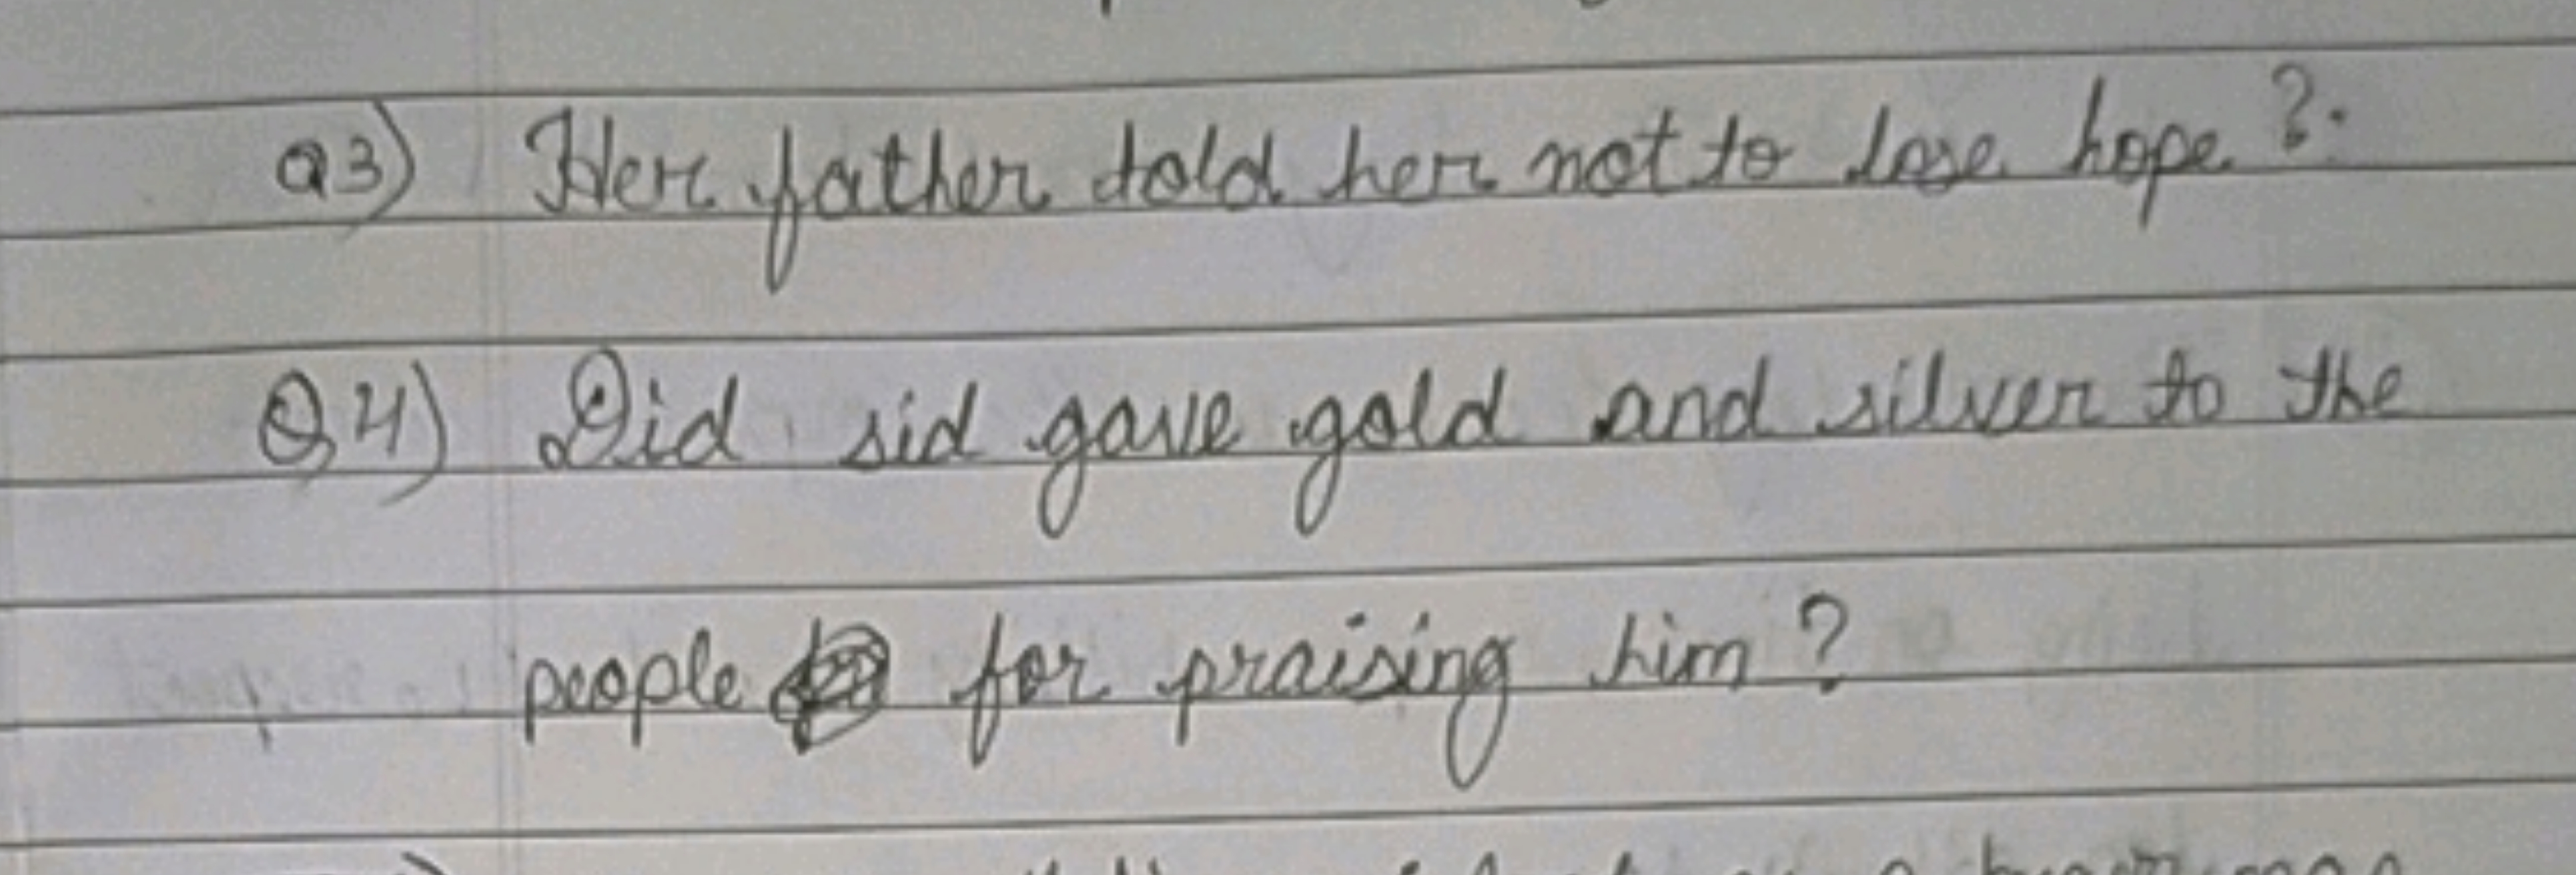 Q3) Her father told her not to lose hope ?.
Q4) Did sid gave gold and silver to the
people for praising him ?